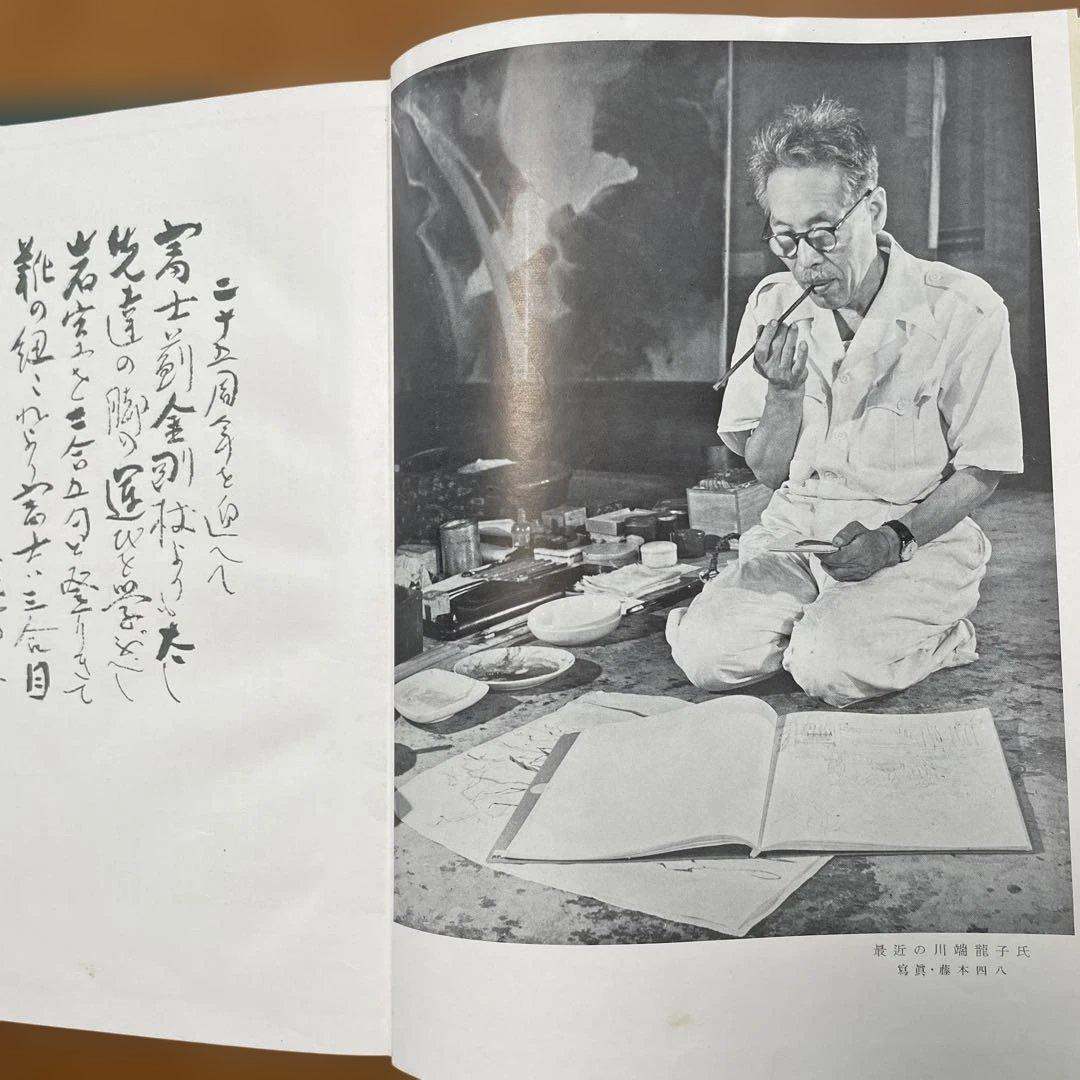 二十五周年を迎へて
富士薊金剛杖よりも太し
先達の脚の運びを学ぶべし
岩室を七合五勺と登りきて
靴の紐これより富士は三合目
最近の川端龍子氏
寫眞・藤本四八